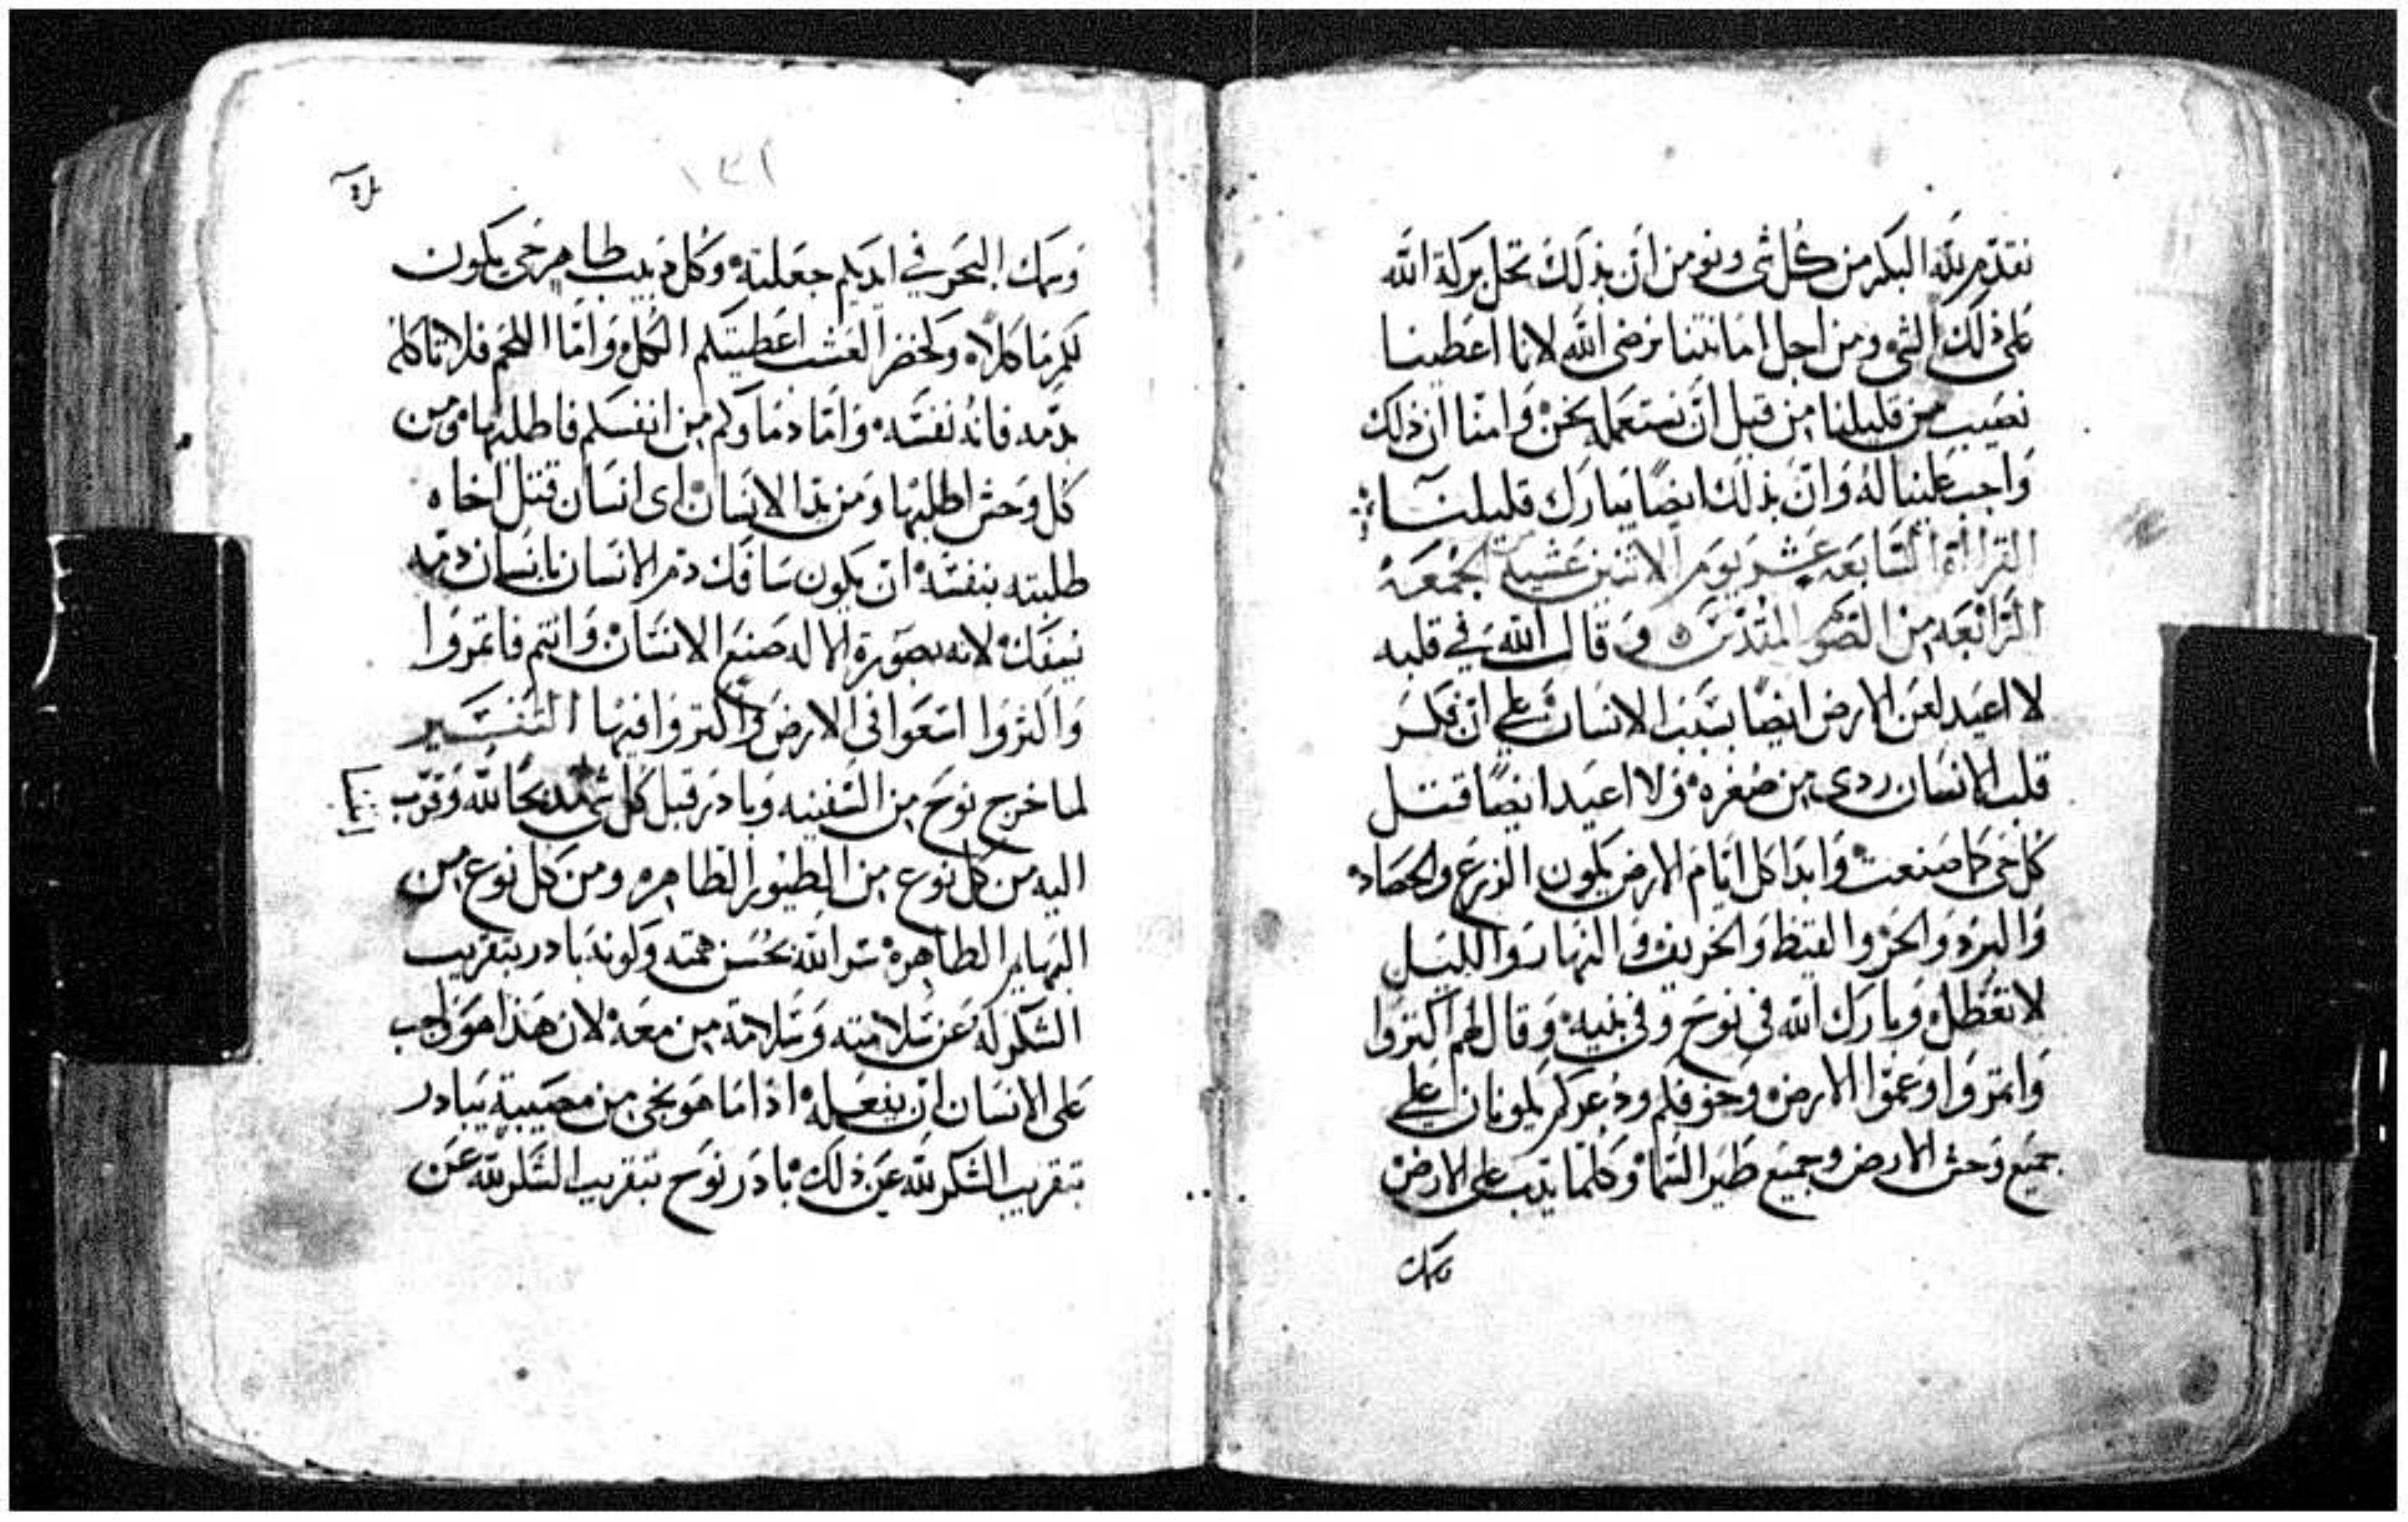 نقدم لله البكر من كل شى ونومن ان بذلك تحل بركة الله
على ذلك الشى ومن اجل امانتنا يرضى الله لانا اعطينا
نصيب من قليلنا من قبل ان نستعمله نحن وامنا ان ذلك
واجب علينا له وان بذلك ايضًا يبارك قليلنا
القراة السابعه عشر يوم الاثنين عشية الجمعه
الرابعه من الصوم المقدس وقال الله في قلبه
لا اعيد لعن الارض ايضًا بسبب الانسان على ان فكر
قلب الانسان ردى من صغره ولا اعيد ايضًا قتل
كل حى كما صنعت وابدا كل ايام الارض يكون الزرع والحصاد
والبرد والحر والقيظ والخريف والنهار والليل
لا تعطل وبارك الله فى نوح وفى بنيه وقال لهم اكثروا
وانموا وعموا الارض وخوفكم وذعركم يكونان على
جميع وحش الارض وجميع طير السما وكلما يدب على الارض
وسمك
١٣١
وسمك البحر في ايديكم جعلته وكل دبيب طاهر حى يكون
لكم ماكلاً وكخضر العشب اعطيتكم الكل واما اللحم فلا تاكله
بدمه فانه نفسه واما دماوكم من انفسكم فاطلبها ومن
كل وحش اطلبها ومن يد الانسان اى انسان قتل اخاه
طلبته بنفسه ان يكون سافك دم الانسان بانسان دمه
يسفك لانه بصورة الاله صنع الانسان وانتم فاثمروا
واكثروا اسعوا فى الارض واكثروا فيها التفسير
لما خرج نوح من السفينه وبادر قبل كل شى مذبحًا لله وقرب
اليه من كل نوع من الطيور الطاهره ومن كل نوع من
البهايم الطاهرة سر الله بحسن همته ولونه بادر بتقريب
الشكر له عن سلامته وسلامة من معه لان هذا هو واجب
على الانسان ان يفعله اذا ما هو نجى من مصيبة يبادر
بتقريب الشكر لله عن ذلك بادر نوح بتقريب الشكر لله عن